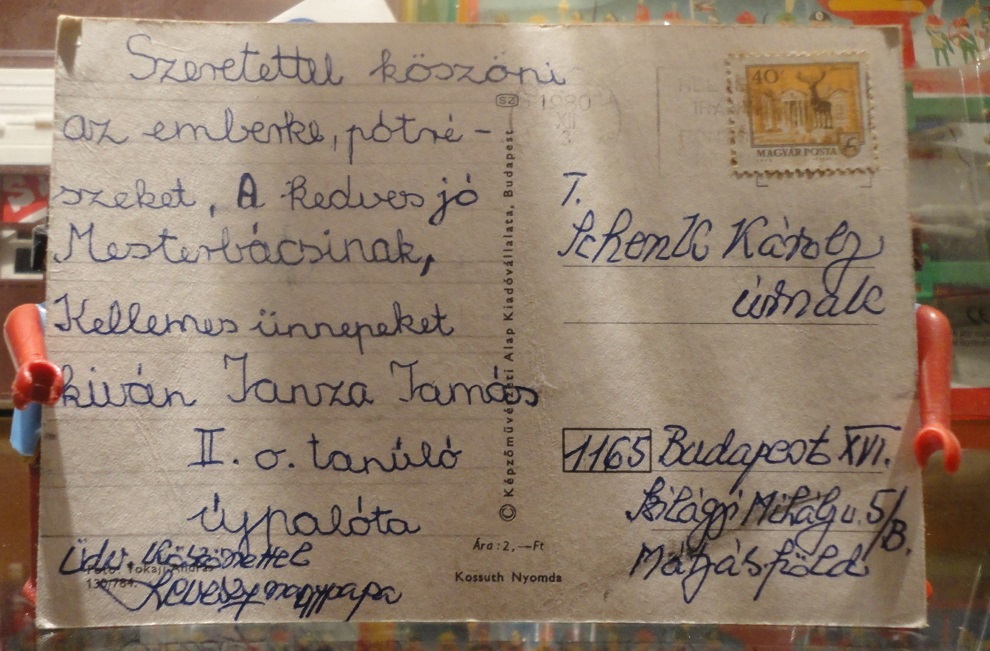 Szeretettel köszöni
az emberke, pótré-
szeket, A kedves jó
Mesterbácsinak,
Kellemes ünnepeket
kiván Tanza Tamás
II. o. tanúló
újpalóta
Üdv. Köszönettel
nagypapa
Fotó: Tokaji András
© Képzőművészeti Alap Kiadóvállalata, Budapest
SZ
1980
XII
40
MAGYAR POSTA
T.
Schenk Károly
úrnak
1165 Budapest XVI.
Szilágyi Mihály u. 5/B.
Mátyásföld
Ára: 2,—Ft
Kossuth Nyomda